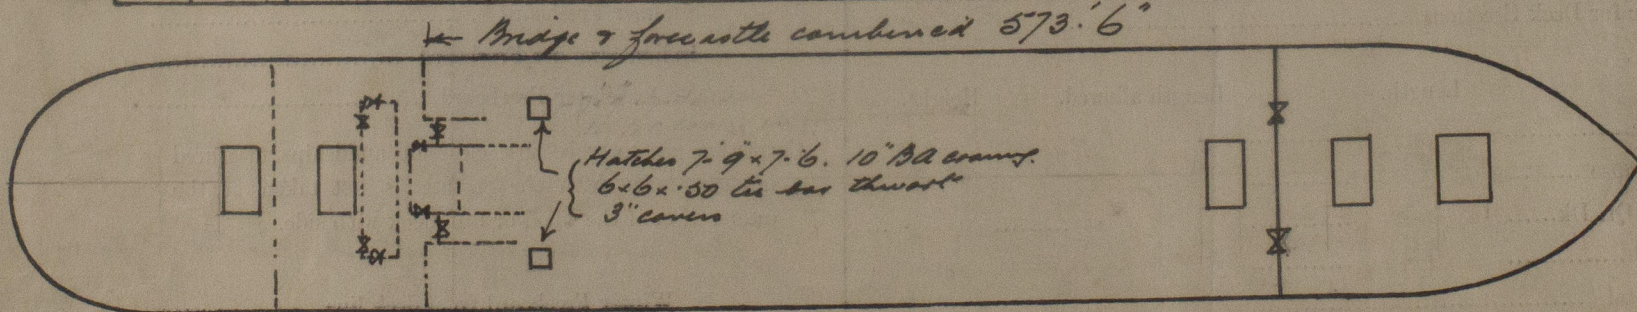 Bridge & forecastle combined 573'.6"
Hatches 7'-9" x 7'-6. 10" BA coaming.
6x6x.50 tee bar thwart
3" covers